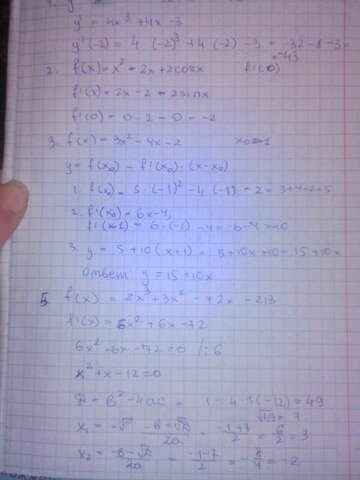 y' = 4x³ + 4x - 3
y'(-2) = 4 · (-2)³ + 4(-2) - 3 = -32 - 8 - 3 =
= -43
2. f(x) = x² - 2x + 2cosx f'(0)
f'(x) = 2x - 2 - 2sinx
f'(0) = 0 - 2 - 0 = -2
3. f(x) = 3x² - 4x - 2 x₀ = -1
y = f(x₀) - f'(x₀) · (x - x₀)
1. f(x₀) = 3 · (-1)² - 4 · (-1) - 2 = 3 + 4 - 2 = 5
2. f'(x₀) = 6x - 4,
f'(x₀) = 6 · (-1) - 4 = -6 - 4 = -10
3. y = 5 + 10(x + 1) = 5 + 10x + 10 = 15 + 10x
Ответ y = 15 + 10x
5. f(x) = 2x³ + 3x² - 72x - 213
f'(x) = 6x² + 6x - 72
6x² + 6x - 72 = 0 /: 6
x² + x - 12 = 0
D = в² - 4ac = 1 - 4 · 1(-12) = 49
√49 = 7
x₁ = -в + √D / 2a = -1 + 7 / 2 = 6 / 2 = 3
x₂ = -в - √D / 2a = -1 - 7 / 2 = - 8 / 4 = -2